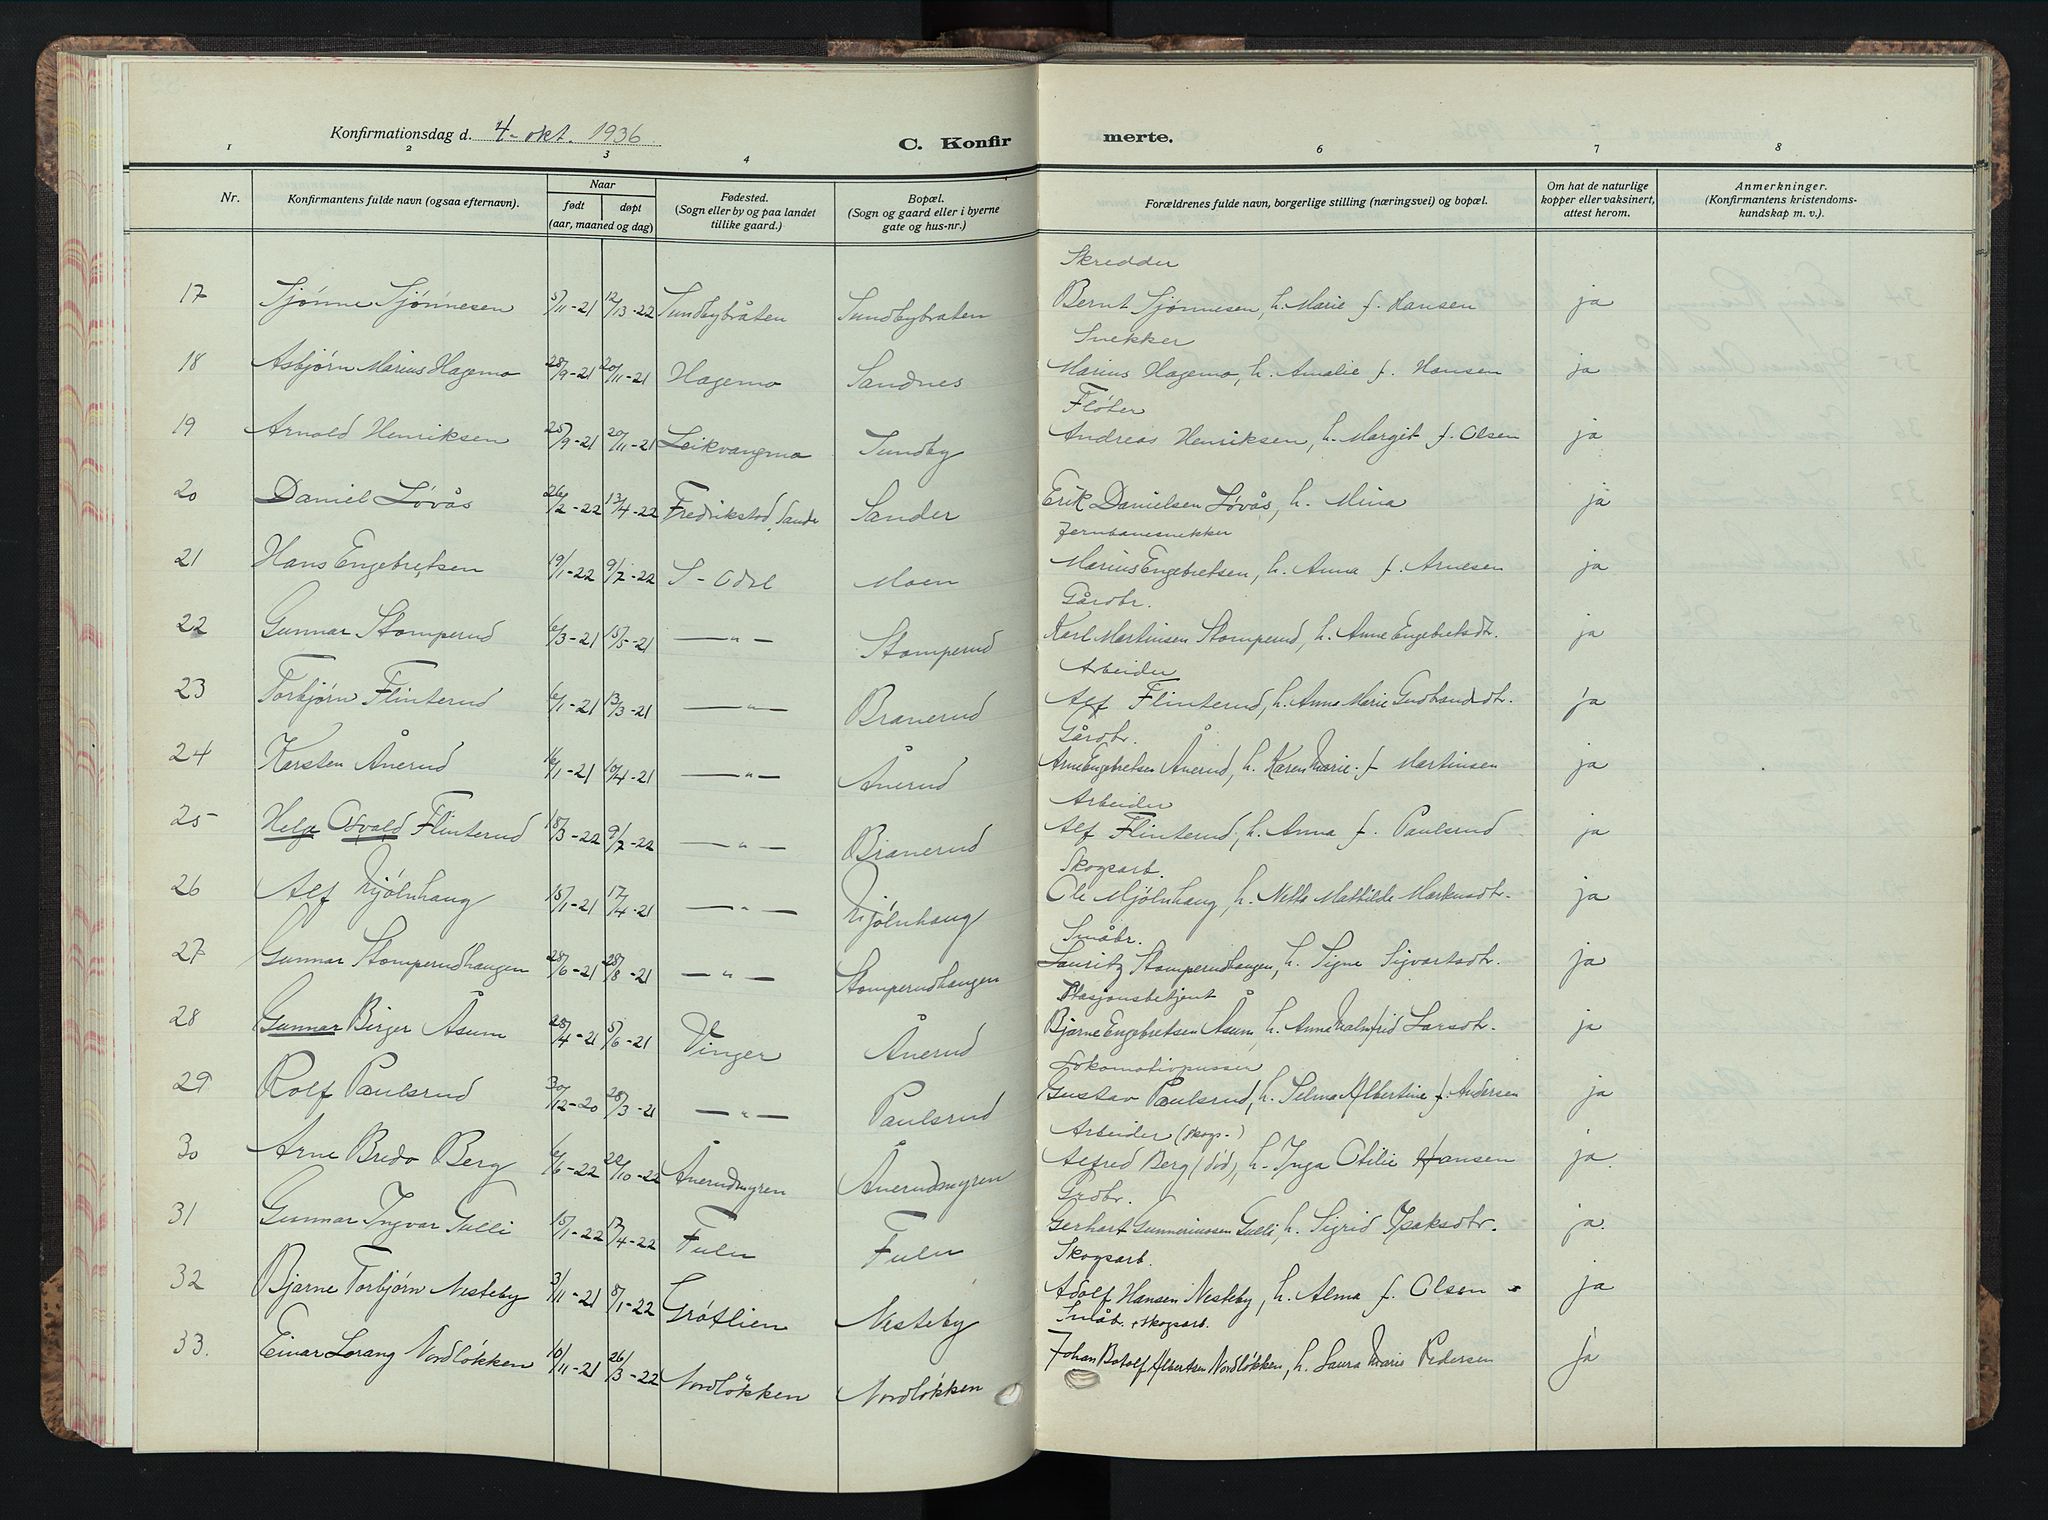 Konfirmationsdag d. 4- okt. 1936
C. Konfirmerte.
1 2 3 4 6 7 8
Nr. Konfirmantens fulde navn (ogsaa efternavn). Naar født døpt (aar, maaned og dag) Fødested. (Sogn eller by og paa landet tillike gaard.) Bopæl. (Sogn og gaard eller i byerne gate og hus-nr.) Forældrenes fulde navn, borgerlige stilling (næringsvei) og bopæl. Om hat de naturlige kopper eller vaksinert, attest herom. Anmerkninger. (Konfirmantens kristendomskundskap m. v.).
Skredder
17 Sjønne Sjønnesen 5/11-21 12/13-22 Sundbybråten Sundbybraten Bernt Sjønnesen, h. Marie f. Hansen ja
Snekker
18 Asbjørn Marius Hagemo 28/9-21 20/11-21 Hagemo Sandnes Marius Hagemo, h. Amalie f. Hansen ja
Fløter
19 Arnold Henriksen 25/9-21 20/11-21 Leikvangmo Sundby Andreas Henriksen, h. Margit f. Olsen ja
20 Daniel Løvås 26/2-22 13/4-22 Fredrikstad, Sande Sander Erik Danielsen Løvås, h. Mina ja
Jernbanesnekker
21 Hans Engebretsen 19/1-22 9/7-22 S-Odal Moen Marius Engebretsen, h. Anna f. Arnesen ja
Gårdbr.
22 Gunnar Stomperud 6/3-21 15/5-21 — " — Stomperud Karl Martinsen Stomperud, h. Anne Engebretsdtr. ja
Arbeider
23 Torbjørn Flinterud 6/1-21 13/3-21 — " — Branerud Alf Flinterud, h. Anna Marie Gudbrandsdtr. ja
Gårdbr.
24 Karsten Ånerud 16/1-21 10/4-21 — " — Ånerud Arne Engebretsen Ånerud, h. Karen Marie f Martinsen ja
Arbeider
25 Helge Osvald Flinterud 15/3-22 9/7-22 — " — Branerud Alf Flinterud, h. Anna f. Paulsrud ja
Skogsarb.
26 Alf Mjølnhaug 15/1-21 17/4-21 — " — Mjølnhaug Ole Mjølnhaug, h. Netta Mathilde Markusdtr. ja
Småbr.
27 Gunnar Stomperudhaugen 28/6-21 28/8-21 — " — Stomperudhaugen Lauritz Stomperudhaugen, h. Signe Sigvartsdtr. ja
Stasjonsbetjent
28 Gunnar Birger Åsum 28/4-21 5/6-21 Vinger Ånerud Bjarne Engebretsen Åsum, h. Anna Malmfrid Larsdtr. ja
Lokomotivpusser
29 Rolf Paulsrud 30/12-20 28/3-21 — " — Paulsrud Gustav Paulsrud, h. Selma Albertine f. Andersen ja
Arbeider (skogs-)
30 Arne Bredo Berg 6/6-22 22/10-22 Ånerudmyren Ånerudmyren Alfred Berg (død), h. Inga Otilie Hansen ja.
Grdbr.
31 Gunnar Ingvar Gulli 15/1-22 17/4-22 Fulu Fulu Gerhart Gunneriussen Gulli, h. Sigrid Isaksdtr. ja.
Skogsarb.
32 Bjarne Torbjørn Nesteby 3/11-21 8/1-22 Grøtlien Nesteby Adolf Hansen Nesteby, h. Alma f. Olsen ja
Småb. + skogsarb.
33. Einar Lorang Nordløkken 10/11-21 26/3-22 Nordløkken Nordløkken Johan Botolf Albertsen Nordløkken, h. Laura Marie Pedersen ja